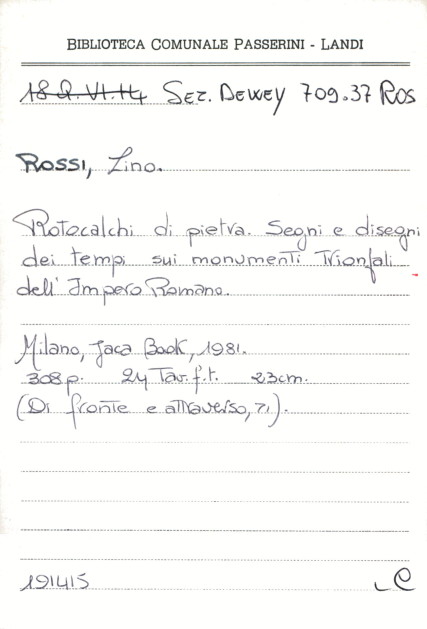 BIBLIOTECA COMUNALE PASSERINI - LANDI
18.Q.VI.14 Sez. Dewey 709.37 Ros
ROSSI, Lino.
Rotocalchi di pietra. Segni e disegni
dei tempi sui monumenti Trionfali
dell'Impero Romano.
Milano, Jaca Book, 1981.
308 p. 24 Tav. f.t. 23 cm.
(Di fronte e attraverso, 71).
191415